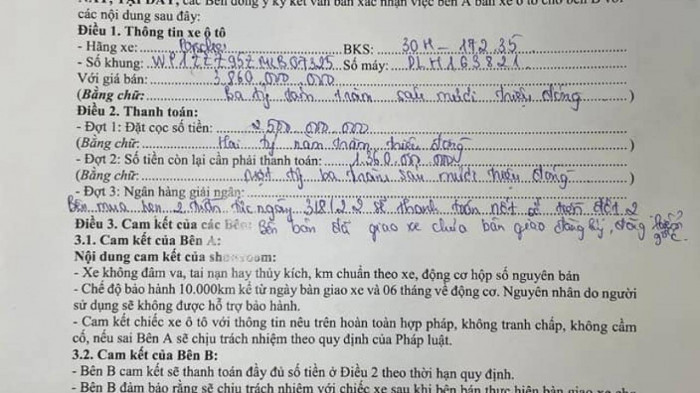 NAY, TẠI ĐÂY, các Bên đồng ý ký kết văn bản xác nhận việc Bên A bán xe ô tô cho Bên B với
các nội dung sau đây:
Điều 1. Thông tin xe ô tô
- Hãng xe: Porsche BKS: 30H - 192.35
- Số khung: WP1ZZZ95ZMLB07325 Số máy: DLH163821
Với giá bán: 3.860.000.000
(Bằng chữ: Ba tỷ tám trăm sáu mươi triệu đồng )
Điều 2. Thanh toán:
- Đợt 1: Đặt cọc số tiền: 2.500.000.000
(Bằng chữ: Hai tỷ năm trăm triệu đồng )
- Đợt 2: Số tiền còn lại cần phải thanh toán: 1.360.000.000
(Bằng chữ: Một tỷ ba trăm sáu mươi triệu đồng )
- Đợt 3: Ngân hàng giải ngân:
Bên mua hẹn 2 tuần từ ngày 3/8/22 sẽ thanh toán nốt số tiền đợt 2
Điều 3. Cam kết của các Bên: Bên bán đã giao xe chưa bàn giao đăng ký, đăng kiểm gốc.
3.1. Cam kết của Bên A:
Nội dung cam kết của showroom:
- Xe không đâm va, tai nạn hay thủy kích, km chuẩn theo xe, động cơ hộp số nguyên bản
- Chế độ bảo hành 10.000km kể từ ngày bàn giao xe và 06 tháng về động cơ. Nguyên nhân do người
sử dụng sẽ không được hỗ trợ bảo hành.
- Cam kết chiếc xe ô tô với thông tin nêu trên hoàn toàn hợp pháp, không tranh chấp, không cầm
cố, nếu sai Bên A sẽ chịu trách nhiệm theo quy định của Pháp luật.
3.2. Cam kết của Bên B:
- Bên B cam kết sẽ thanh toán đầy đủ số tiền ở Điều 2 theo thời hạn quy định.
- Bên B đảm bảo rằng sẽ chịu trách nhiệm với chiếc xe sau khi bên bán thực hiện bàn giao xe cho